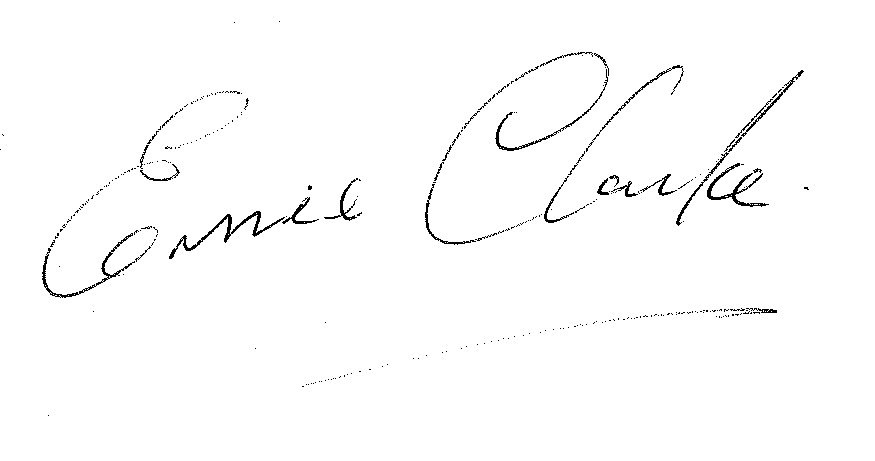 Ernie Clarke.